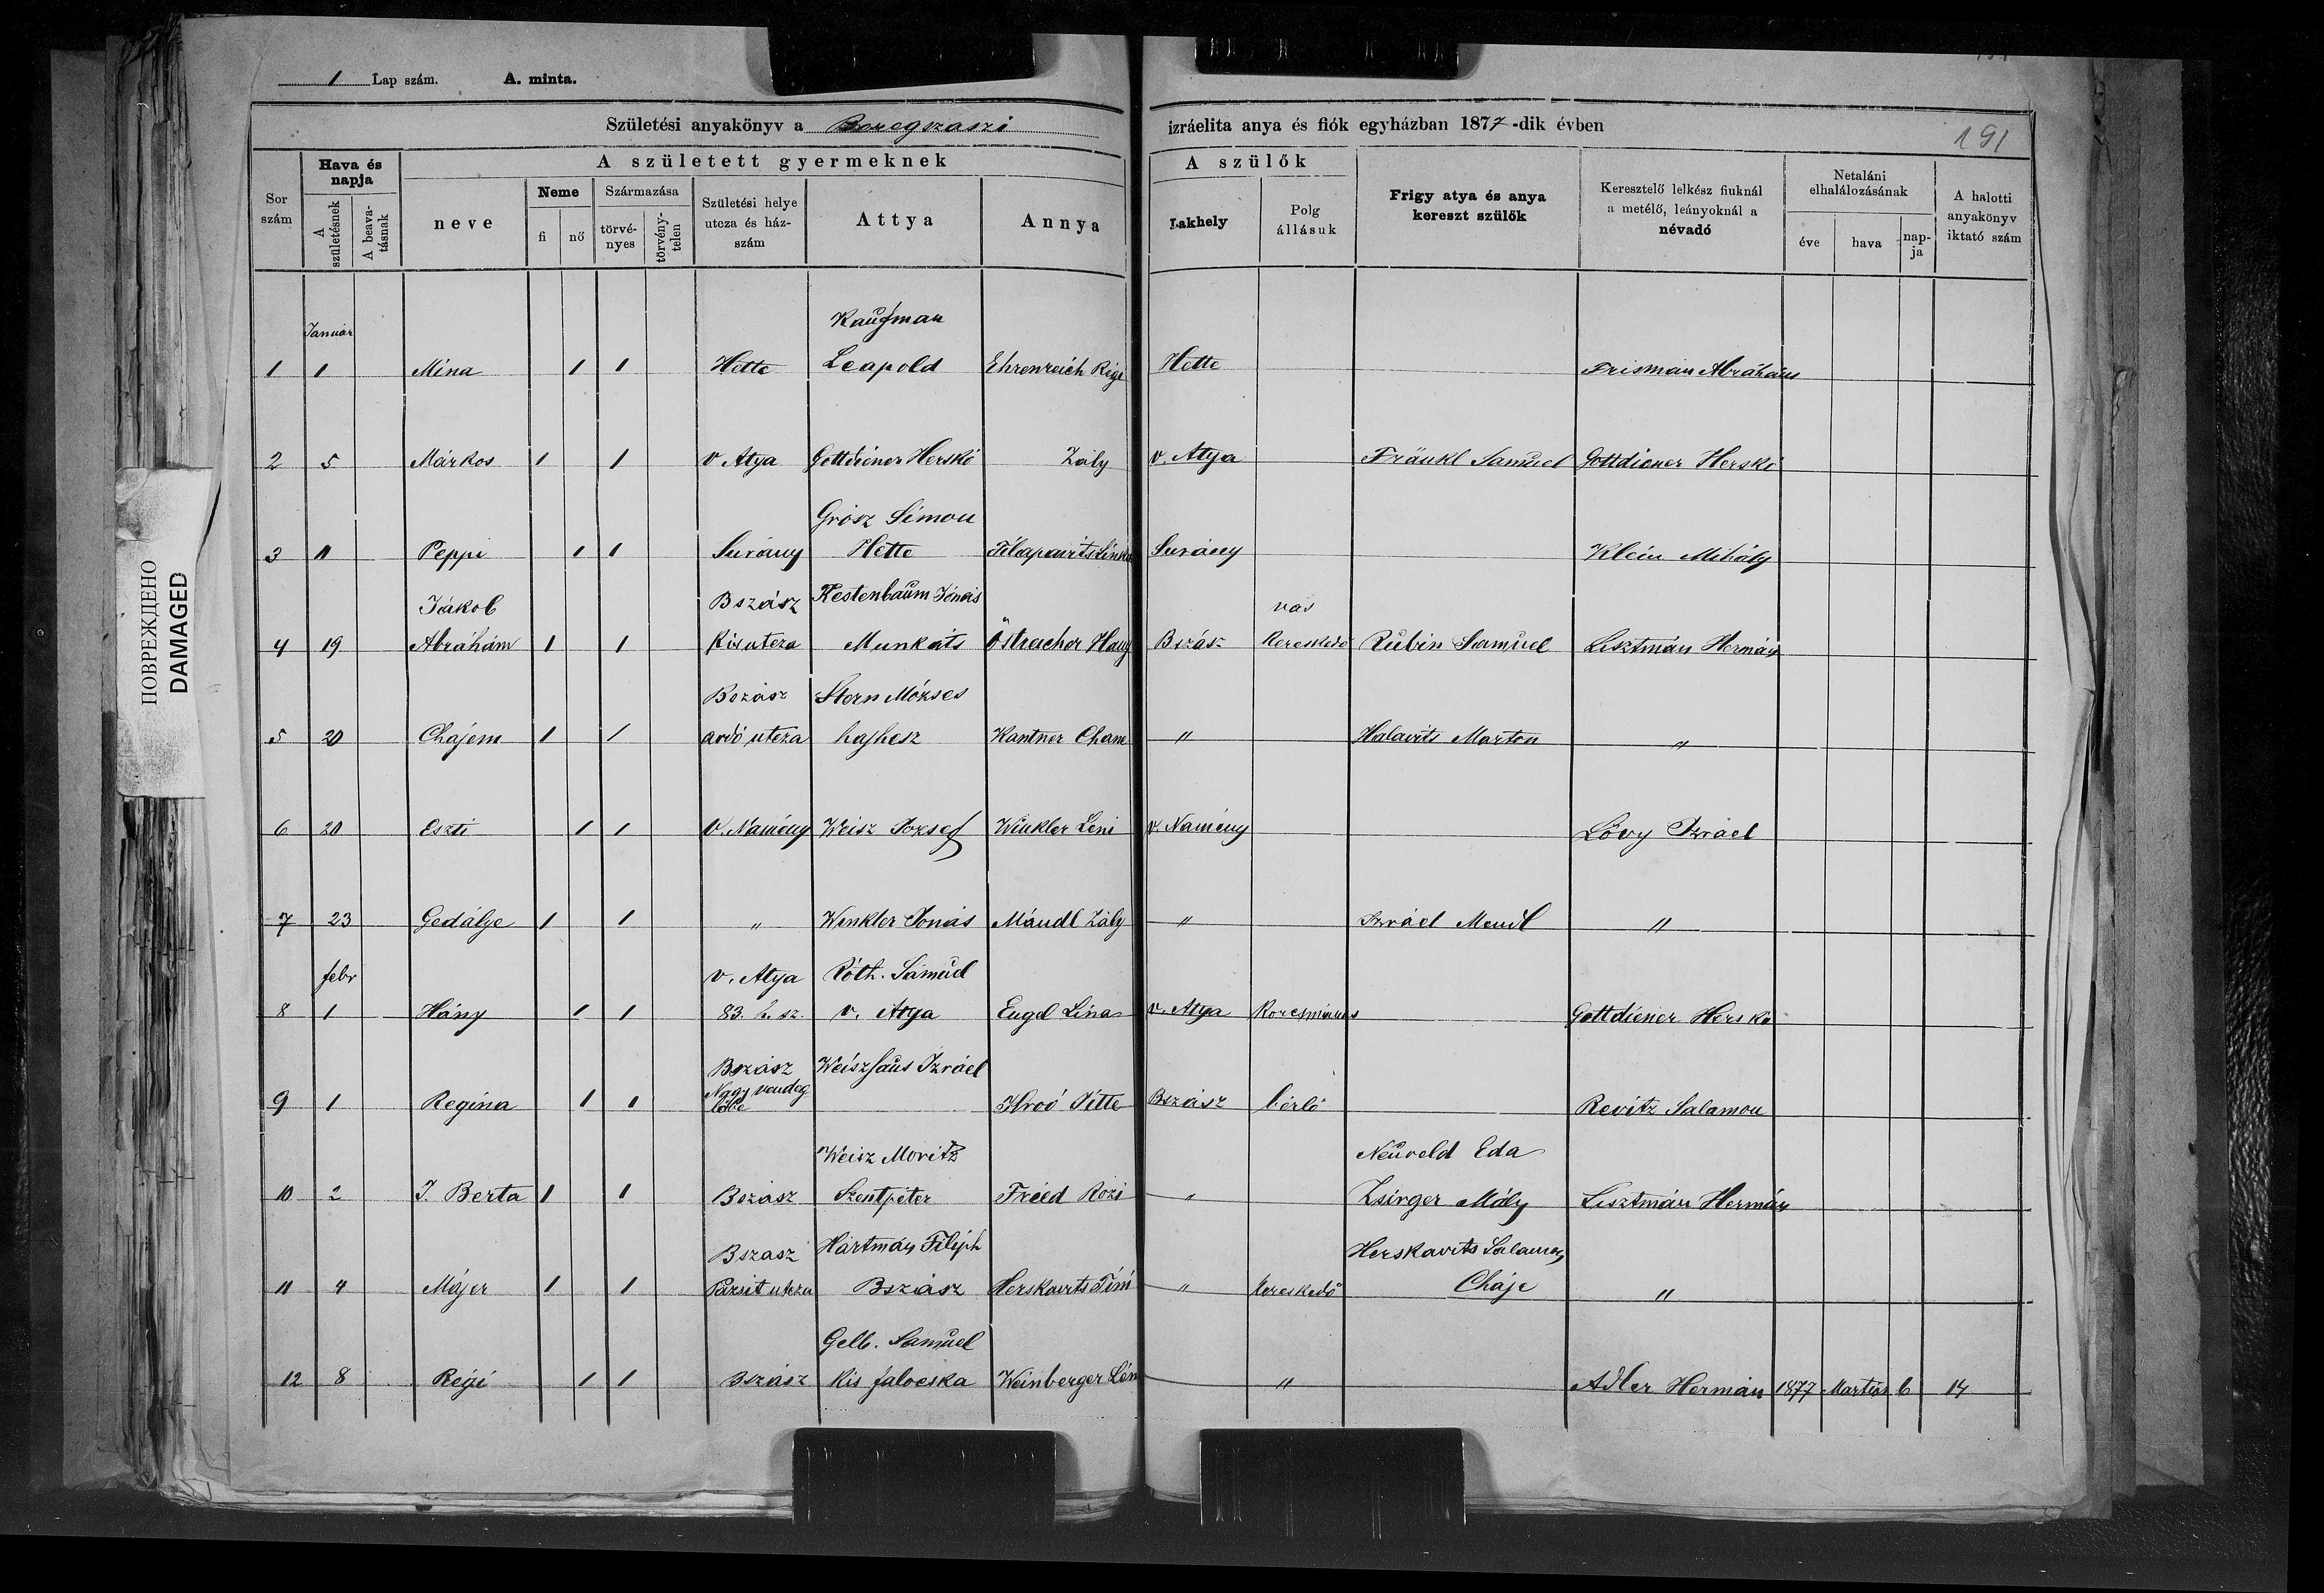 1 Lap szám. A. minta.
Születési anyakönyv a Beregszaszi izráelita anya és fiók egyházban 1877-dik évben
191
Sor szám
Hava és napja
A születésnek
A beava-tásnak
A született gyermeknek
neve
Neme
fi
nő
Származása
törvé-nyes
törvény-telen
Születési helye utcza és ház-szám
Attya
Annya
A szülők
Lakhely
Polg állásuk
Frigy atya és anya kereszt szülők
Keresztelő lelkész fiuknál a metélő, leányoknál a névadó
Netaláni elhalálozásának
éve
hava
nap-ja
A halotti anyakönyv iktató szám
Január Kaufman
1 1 Mina 1 1 Hette Leapold Ehrenreich Regi Hette Frisman Abráhám
2 5 Márkos 1 1 v Atya Gottdiener Herskó Zály v. Atya Fränkl Samuel Gottdiener Herskó
Grósz Simon
3 11 Peppi 1 1 Surány Hette Surány Klein Mihály
Jákob Bszász Kestenbaum Jónás vas
4 19 Abrahám 1 1 Kis utcza Munkáts Östreicher Hany Bszász Kereskedő Rubin Samuel Lisztmán Hermán
Bszász Stern Mózses
5 20 Chájem 1 1 ardó utcza hajhesz Kantner Chane " Halavits Marton "
6 20 Eszti 1 1 V. Namény Weisz Jozsef Winkler Leni v. Namény Lövy Izráel
7 23 Gedálje 1 1 " Winkler Jonás Mándl Zály " Izráel Mendl "
febr v. Atya Róth. Sámuel
8 1 Hány 1 1 83. h. sz. v. Atya Engel Lina v. Atya Korcsmáros Gottdiener Herskó
Bszász Weiszhaus Izráel
Nagy vendeg
9 1 Regina 1 1 lőbe Hroó Pitte Bszász bérlő Revitz Salamon
Weisz Moritz Neuveld Eda
10 2 J. Berta 1 1 Bszász Szentpéter Fried Rozi " Zsirger Mály Lisztmán Hermán
Bszasz Hartmán Filiph Herskavits Salamon
11 4 Májer 1 1 Pázsit utcza Bszász Herskavits Tini " Kereskedő Cháje "
Gelb. Samuel
12 8 Régi 1 1 Bszász Kis falocska Weinberger Léni " Adler Hermán 1877 Martius 6 14
ПОВРЕЖДЕНО
DAMAGED